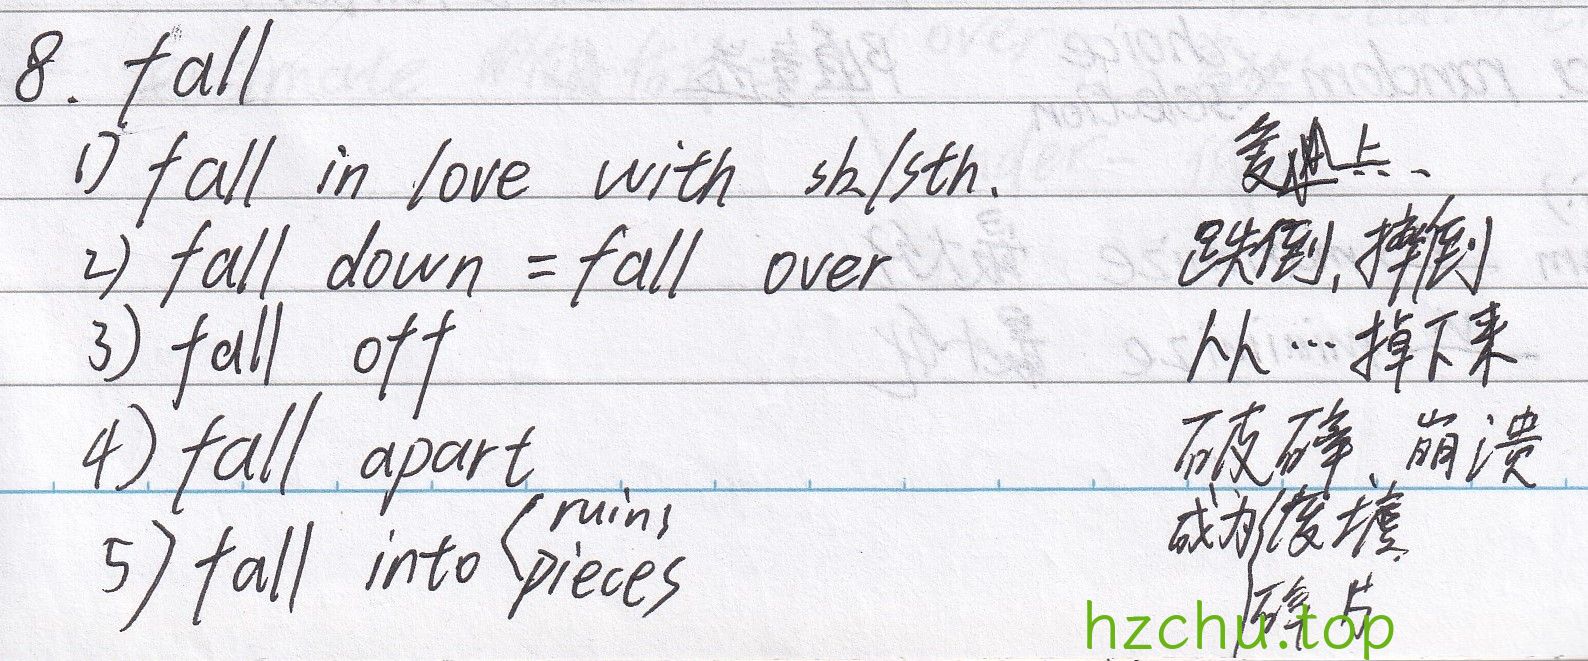 8. fall
1) fall in love with sb/sth. 爱上..
2) fall down = fall over 跌倒,摔倒
3) fall off 从…掉下来
4) fall apart 破碎、崩溃
5) fall into { ruins 成为{废墟
pieces 碎片
hzchu.top